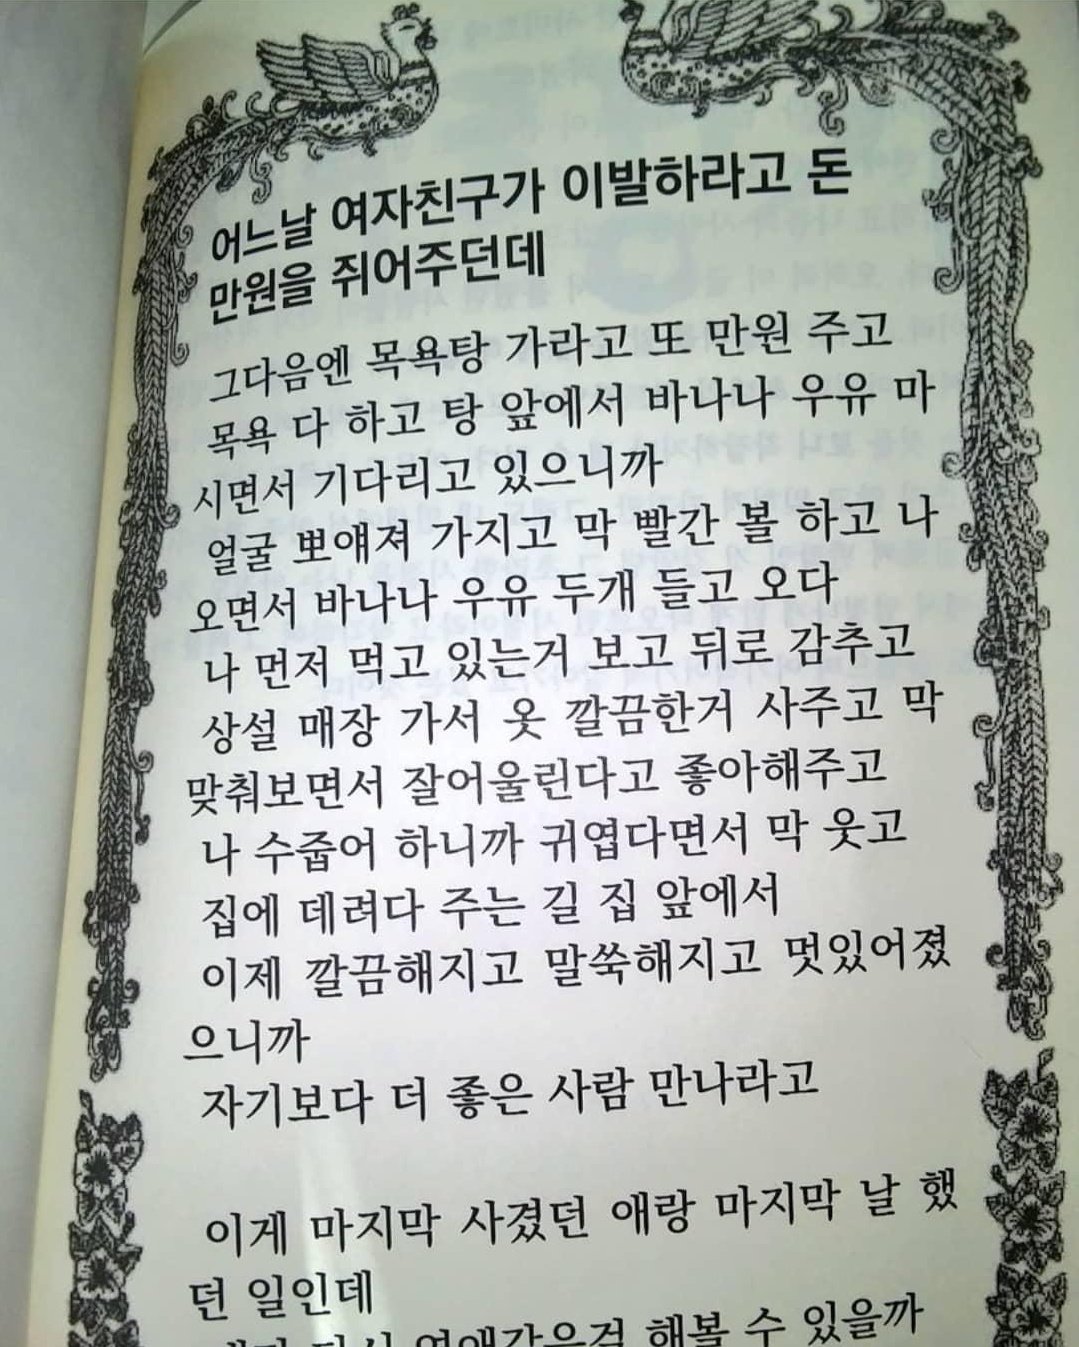 어느날 여자친구가 이발하라고 돈
만원을 쥐어주던데
그다음엔 목욕탕 가라고 또 만원 주고
목욕 다 하고 탕 앞에서 바나나 우유 마
시면서 기다리고 있으니까
얼굴 뽀얘져 가지고 막 빨간 볼 하고 나
오면서 바나나 우유 두개 들고 오다
나 먼저 먹고 있는거 보고 뒤로 감추고
상설 매장 가서 옷 깔끔한거 사주고 막
맞춰보면서 잘어울린다고 좋아해주고
나 수줍어 하니까 귀엽다면서 막 웃고
집에 데려다 주는 길 집 앞에서
이제 깔끔해지고 말쑥해지고 멋있어졌
으니까
자기보다 더 좋은 사람 만나라고
이게 마지막 사겼던 애랑 마지막 날 했
던 일인데
다시 연애같은걸 해볼 수 있을까